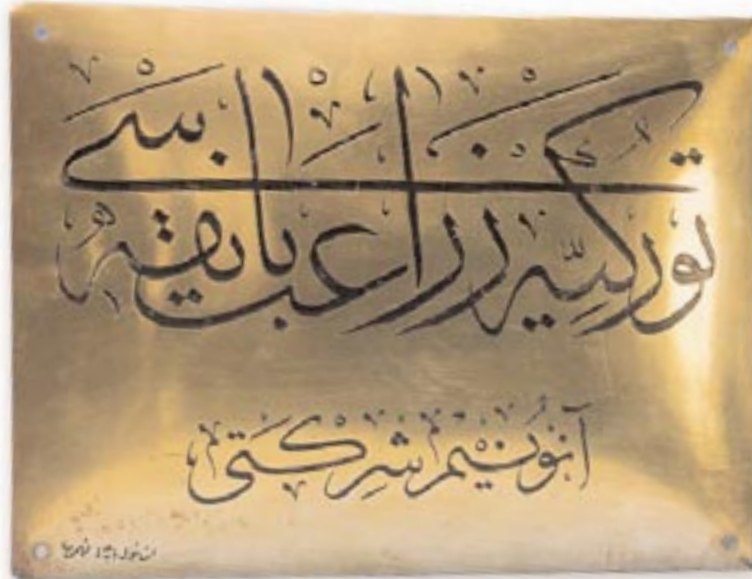 توركيّه زراعت بانقه سی
آنونيم شركتی